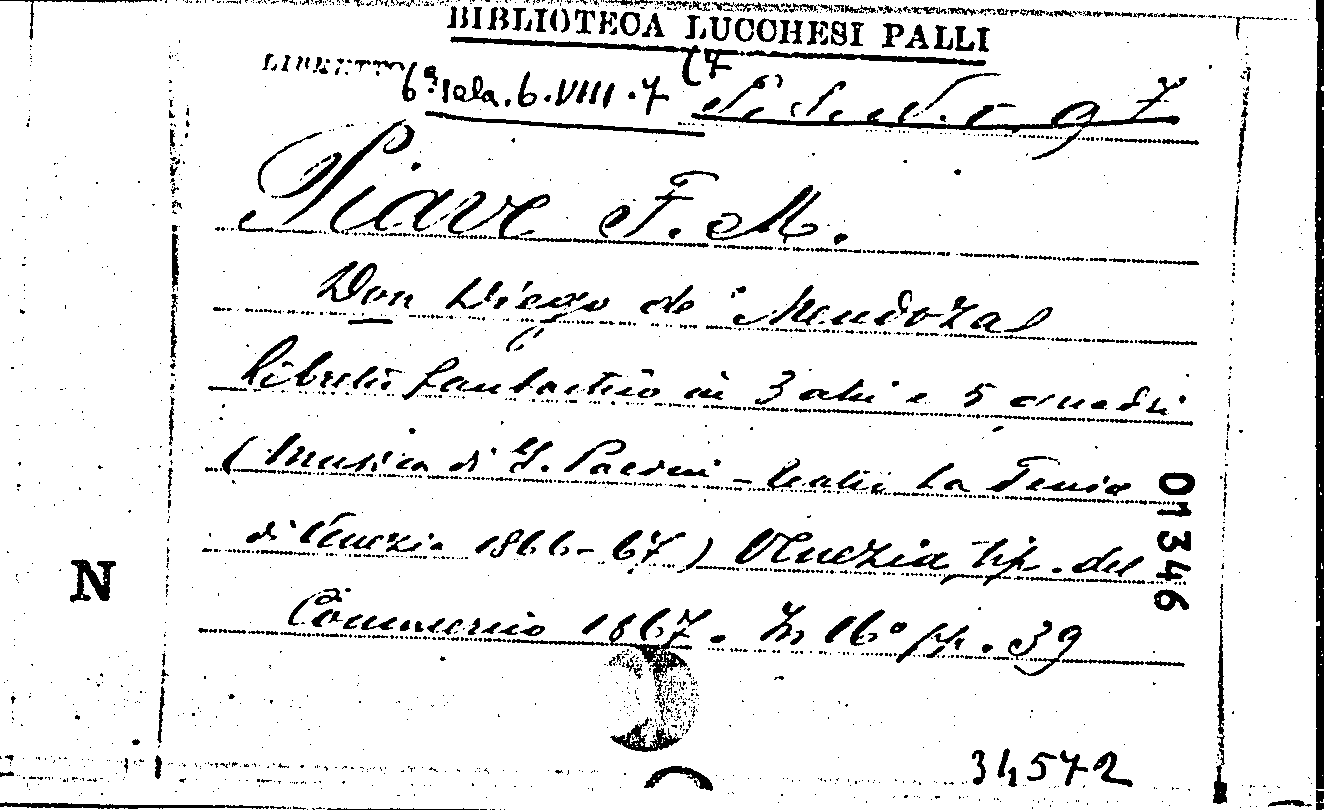 BIBLIOTECA LUCCHESI PALLI
LIBRETTO
6ª Sala. 6. VIII. 7 (7
Piave F. M.
Don Diego de Mendoza
libretto fantastico in 3 atti e 5 quadri
(musica di G. Pacini - teatro La Fenice
di Venezia 1866-67) Venezia, tip. del
Commercio 1867. In 16° pp. 39
01346
N
34572